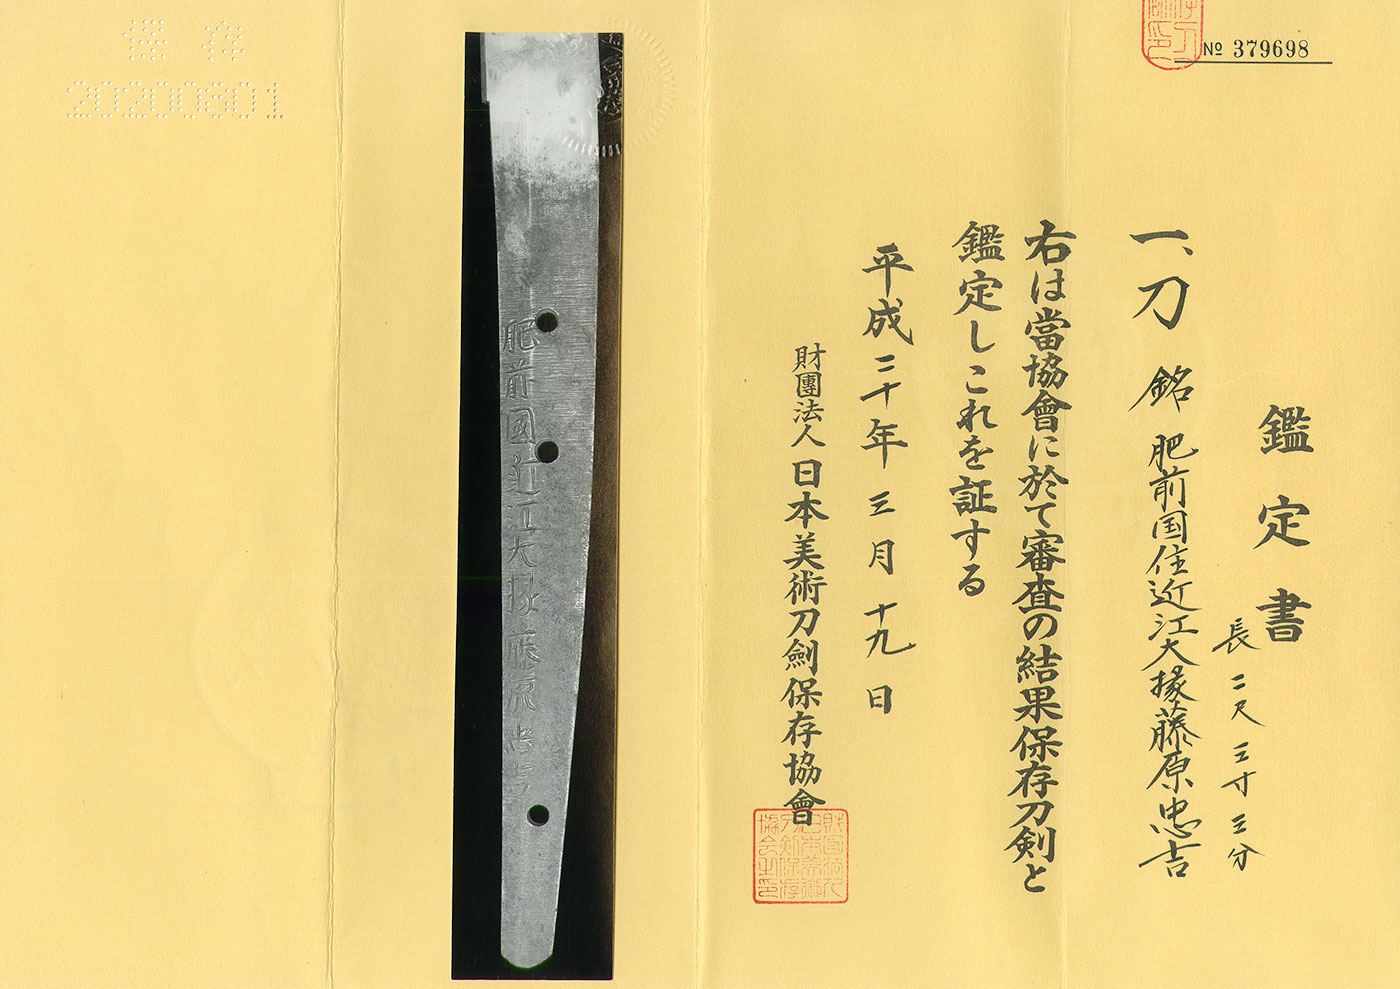 No 379698
鑑定書
一、刀 銘 肥前国住近江大掾藤原忠吉
長 二尺三寸三分
右は當協會に於て審査の結果保存刀剣と
鑑定しこれを証する
平成二十年三月十九日
財團法人日本美術刀劍保存協會
肥前國近江大掾藤原忠吉
保存
20200601